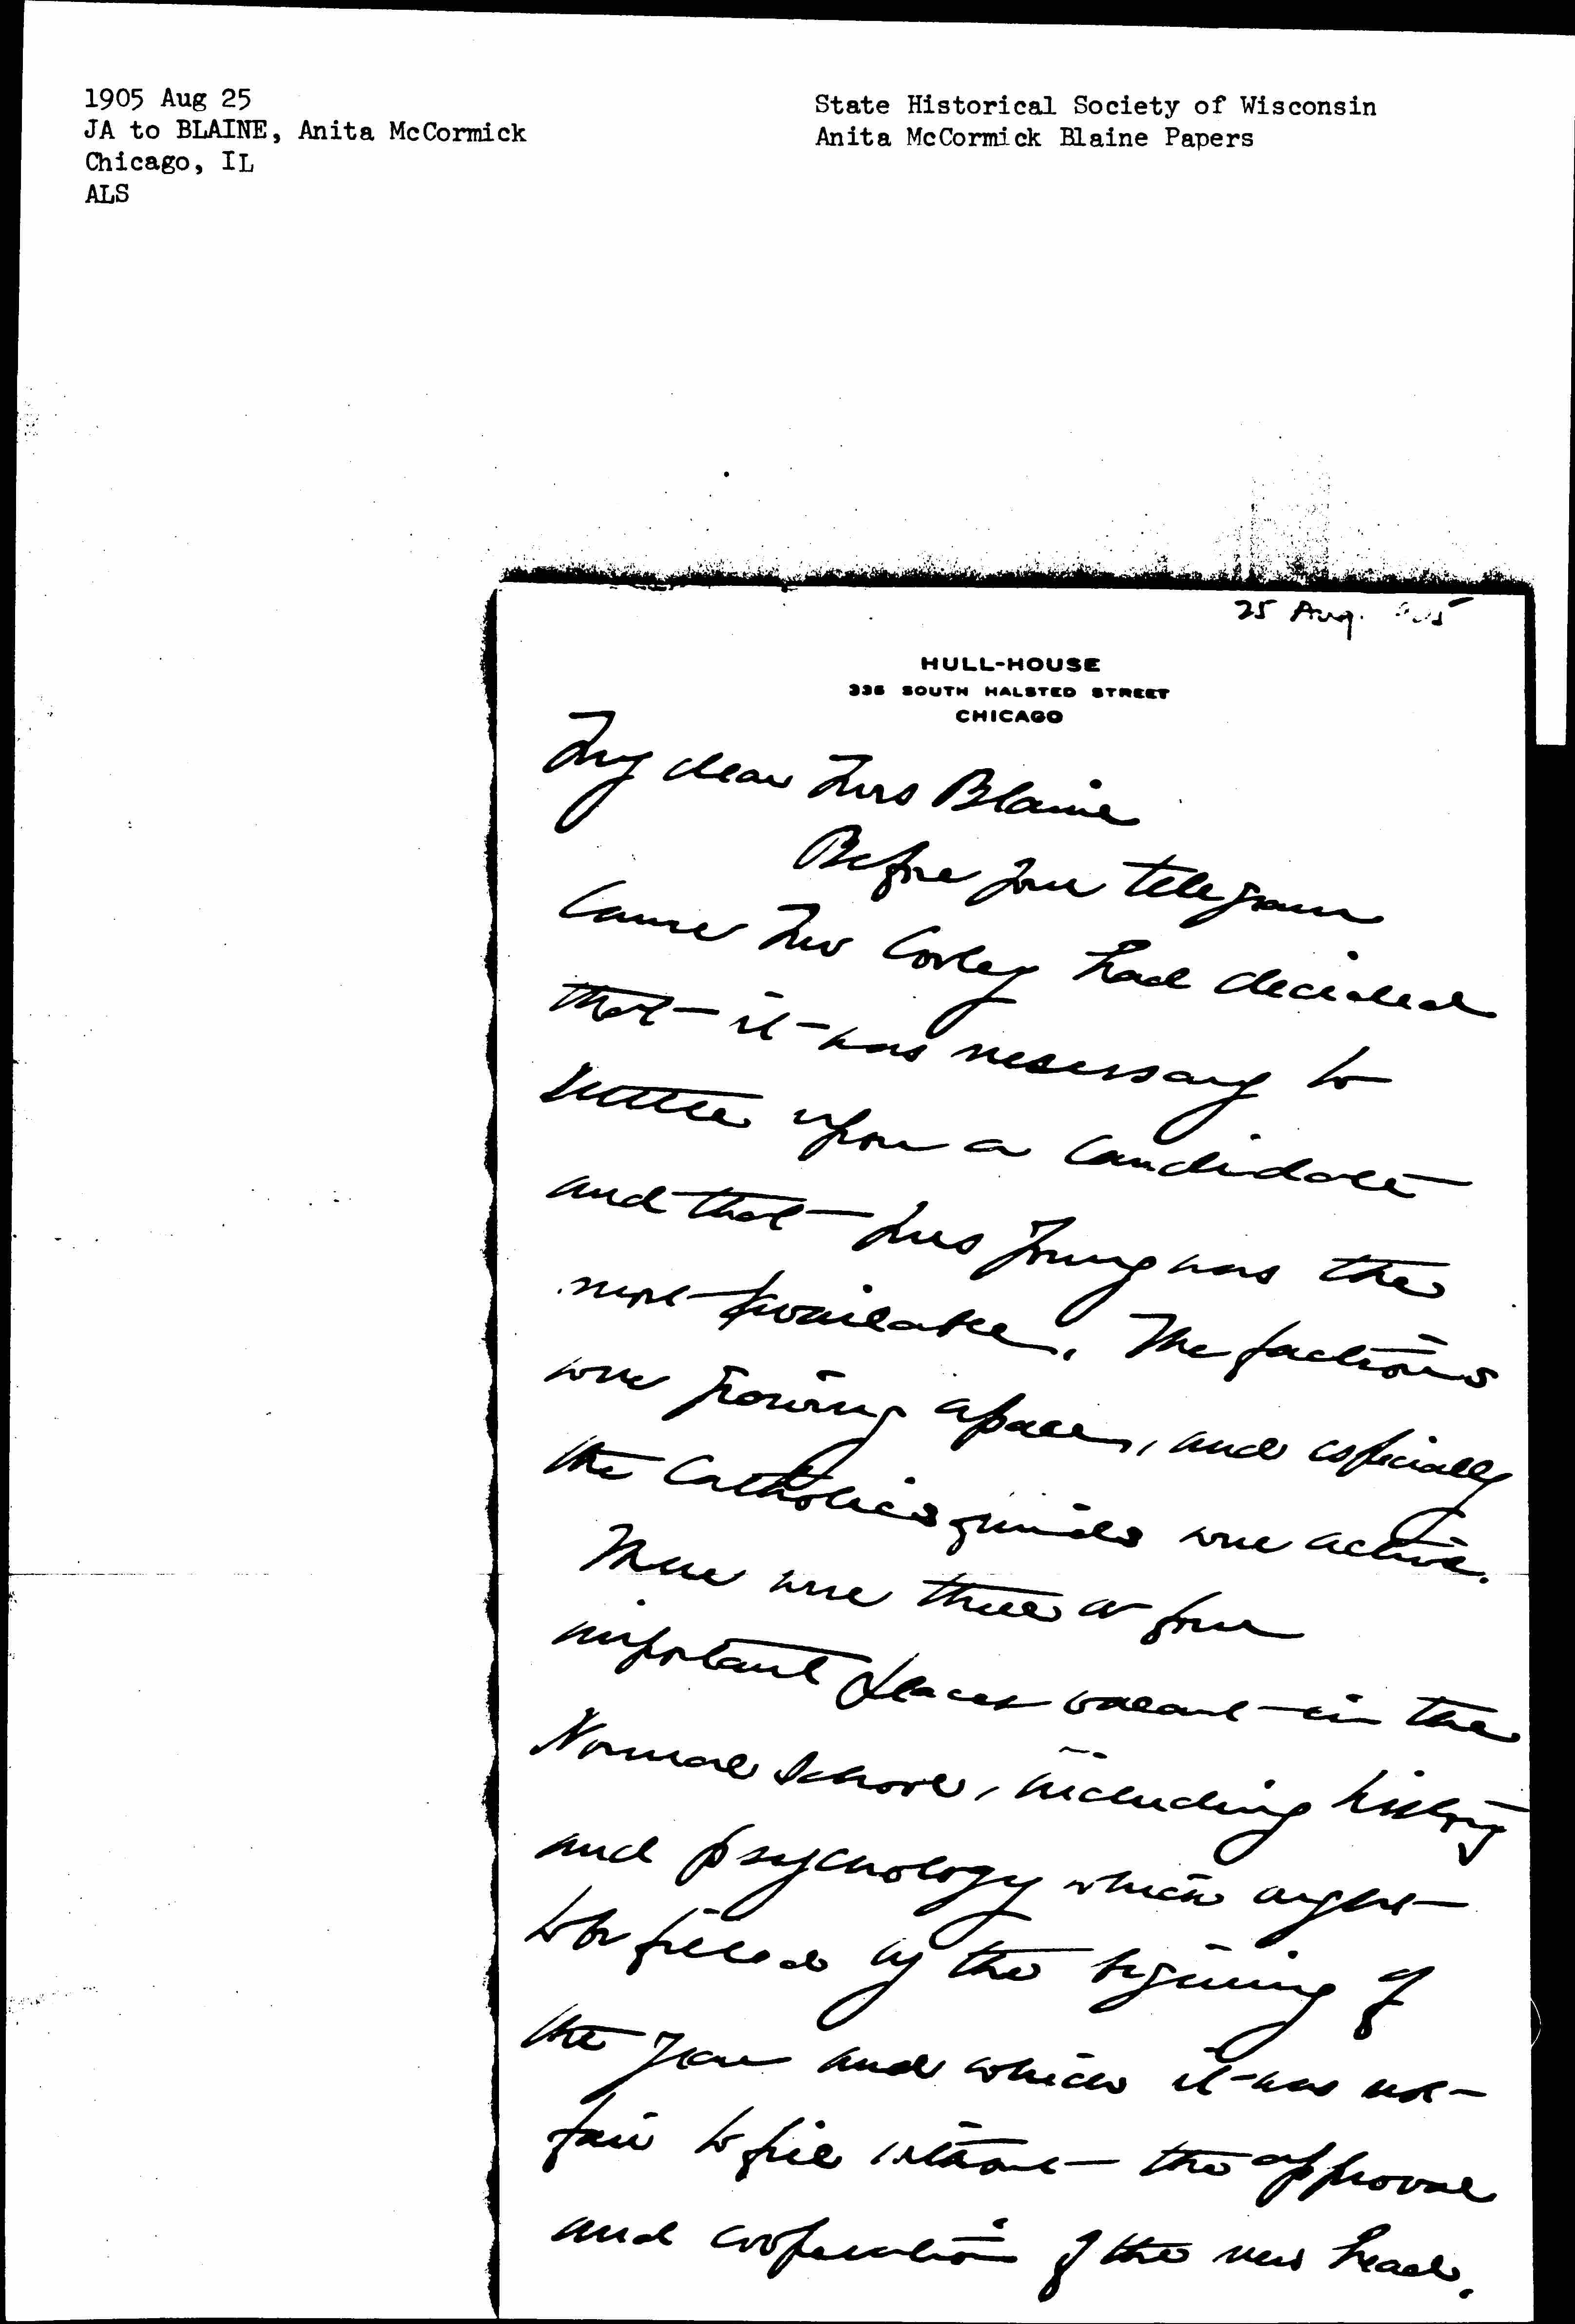 1905 Aug 25
JA to BLAINE, Anita McCormick
Chicago, IL
ALS
State Historical Society of Wisconsin
Anita McCormick Blaine Papers
25 Aug. 1905
HULL-HOUSE
335 SOUTH HALSTED STREET
CHICAGO
My dear Mrs Blaine
Before your telegram
came Mr Cooley had decided
that it was nesessary to
settle upon a candidate
and that Mrs Young was the
most available. The factions
were growing apace, and especially
the Catholics were active.
There were three or four
important places vacant in the
Normal School, including history
and psychology which ought
to be filled by the begining of
the year and which it was not
fair to fill without the approval
and cooperation of the new head.